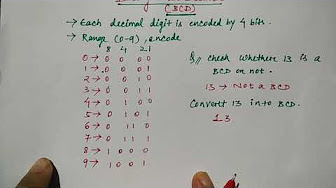 (BCD)
→ Each decimal digit is encoded by 4 bits.
→ Range (0-9), encode
8 4 2 1
0 → 0 0 0 0
1 → 0 0 0 1
2 → 0 0 1 0
3 → 0 0 1 1
4 → 0 1 0 0
5 → 0 1 0 1
6 → 0 1 1 0
7 → 0 1 1 1
8 → 1 0 0 0
9 → 1 0 0 1
Q// check whether 13 is a
BCD or not.
13 → Not a BCD
Convert 13 into BCD.
1 3